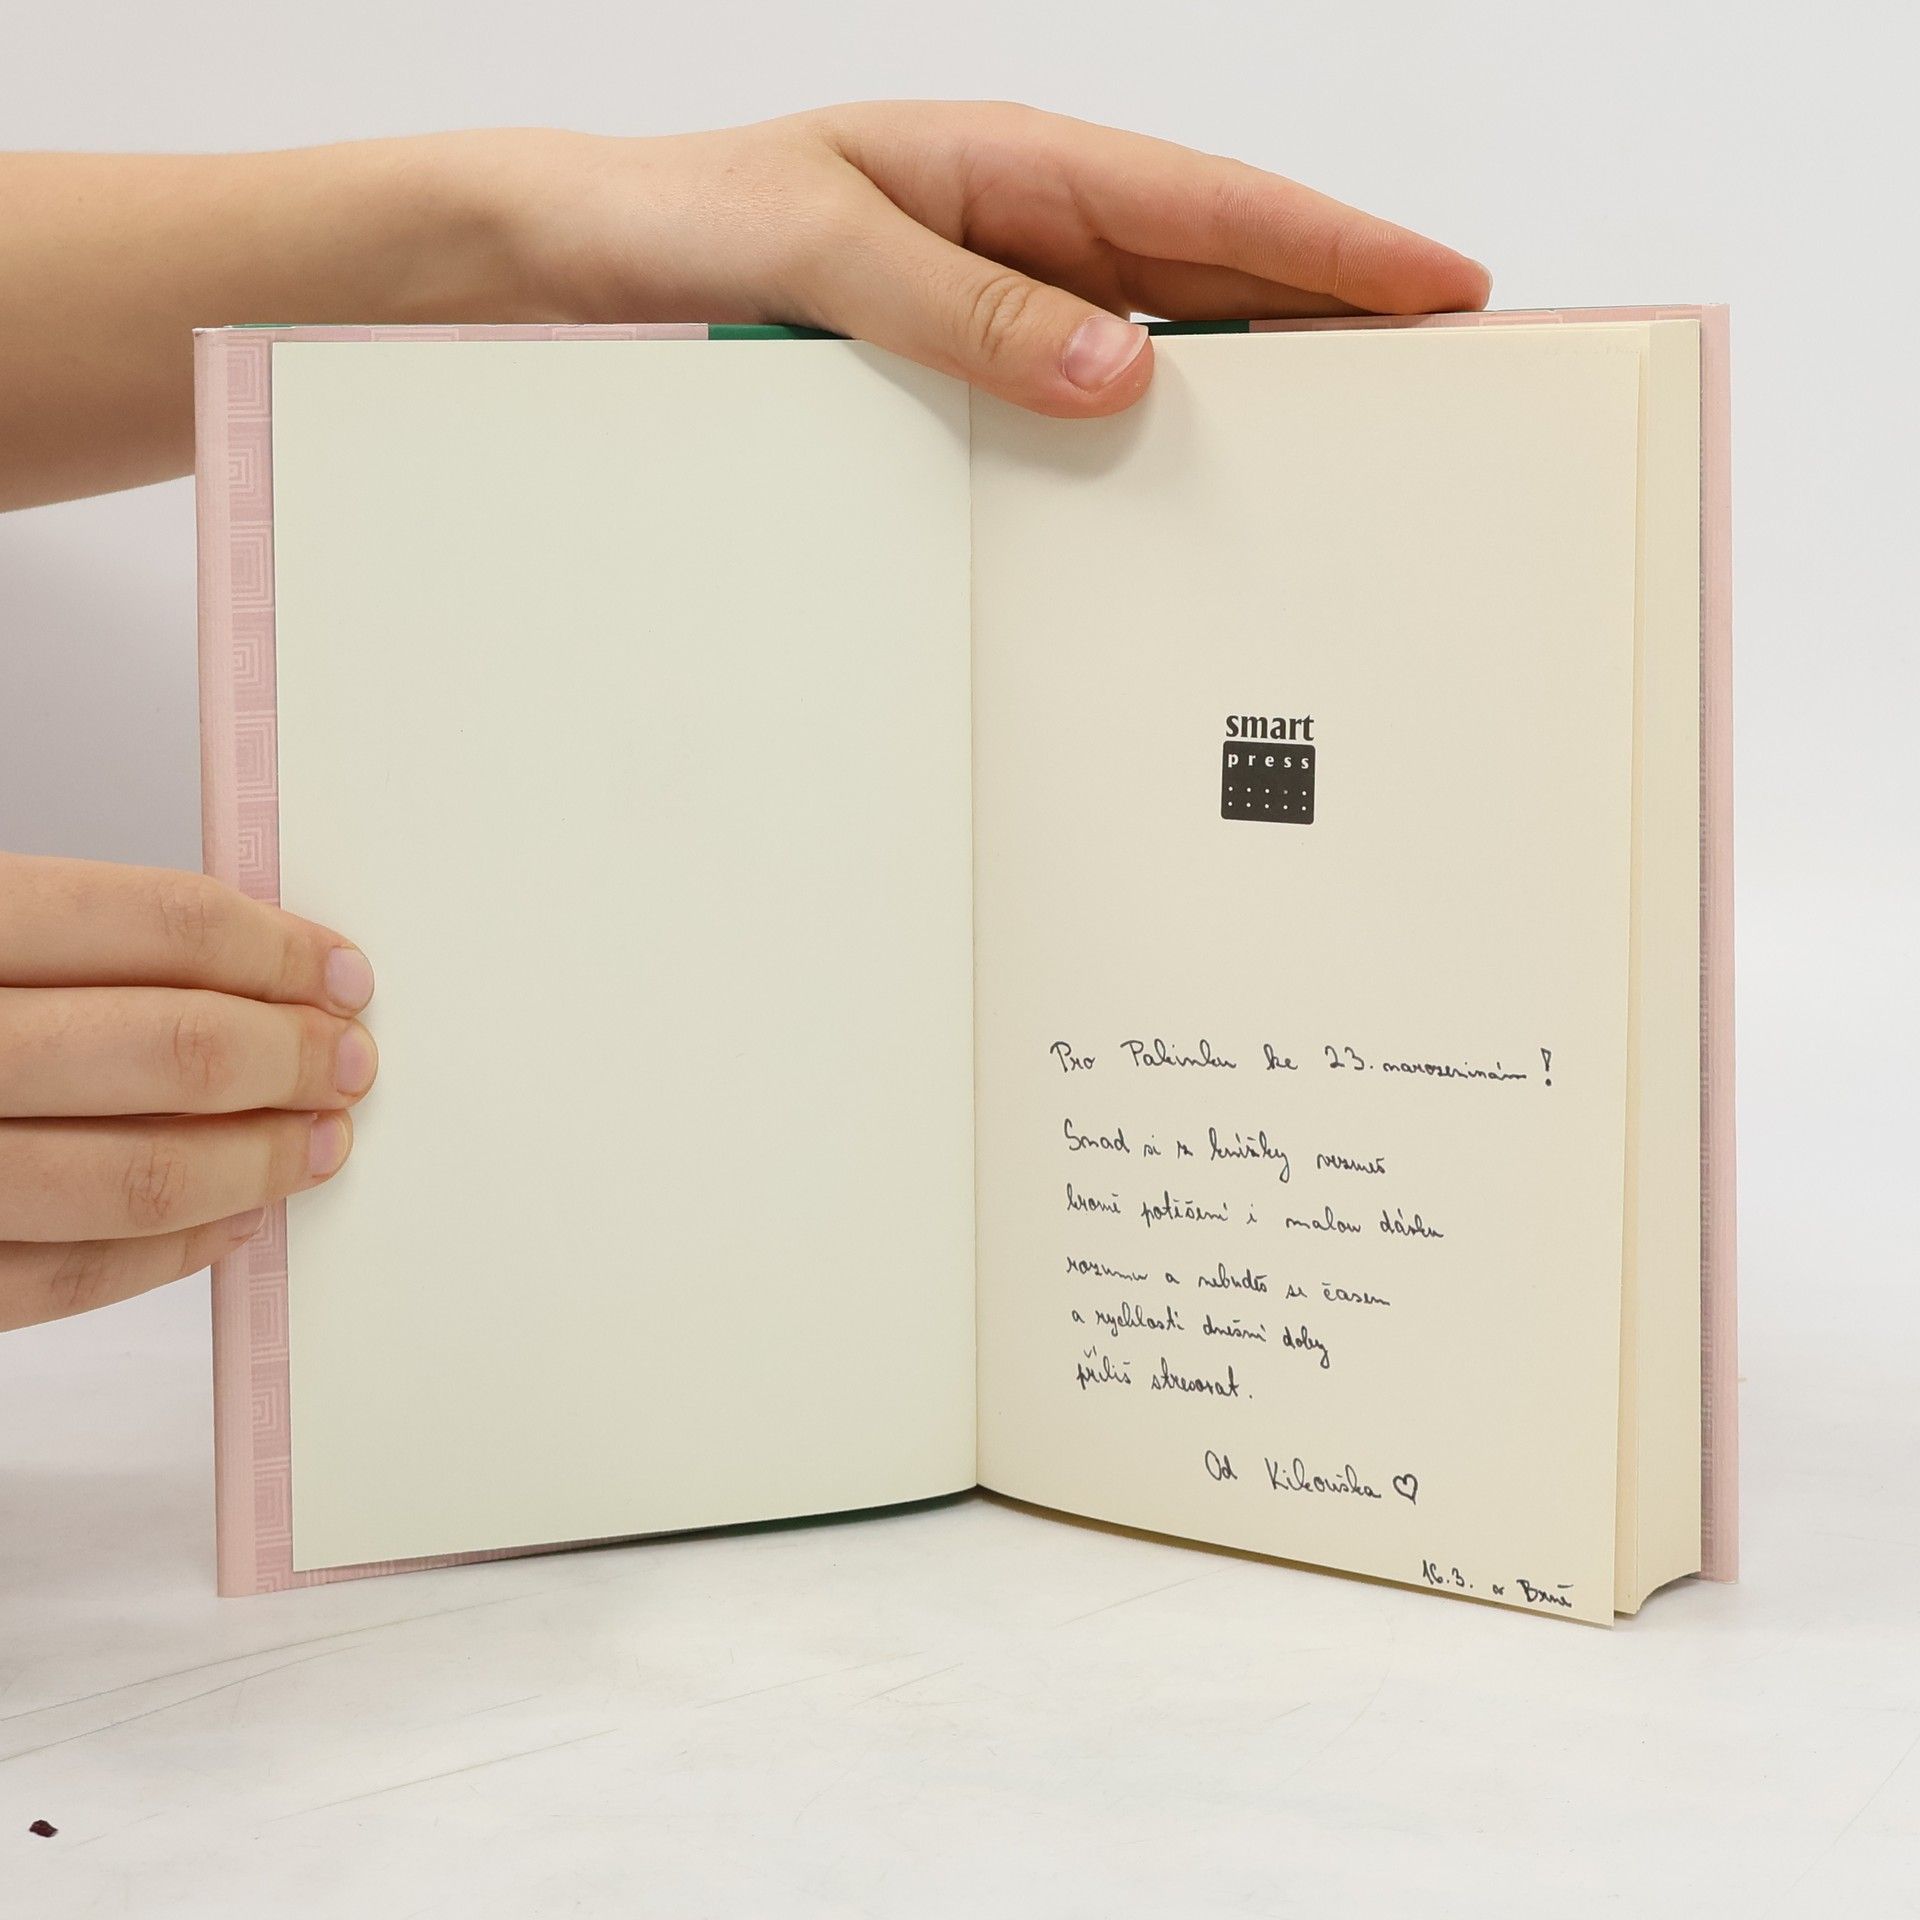 smart
press
Pro Pakinku ke 23. narozeninám!
Snad si z knížky vezmeš
kromě potěšení i malou dávku
rozumu a nebudeš se časem
a rychlostí dnešní doby
příliš stresovat.
Od Kikouška ♡
16.3. v Brně